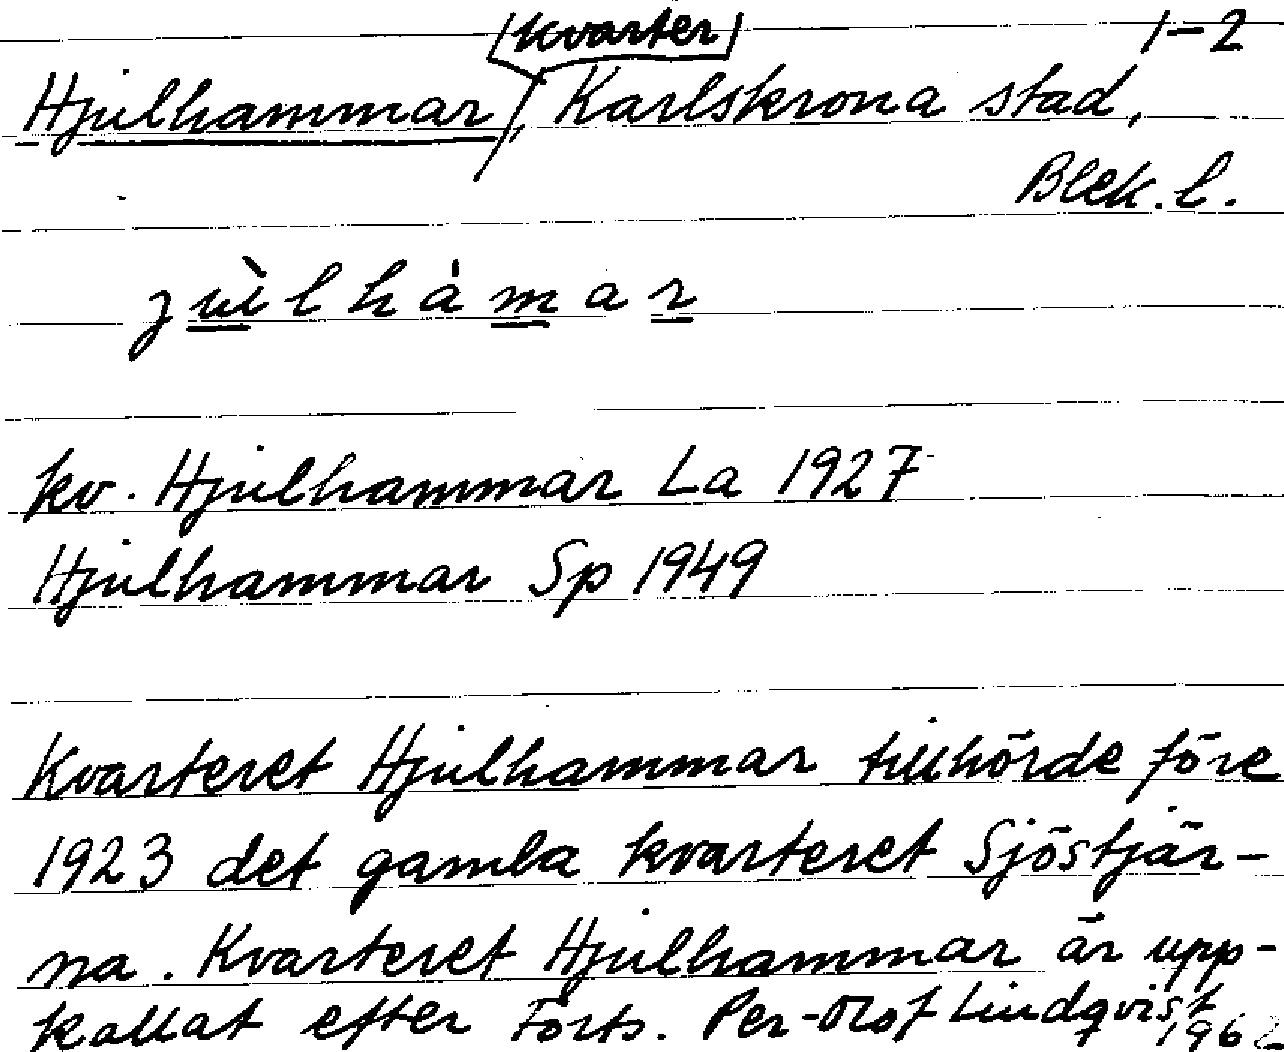 kvarter 1-2
Hjulhammar, Karlskrona stad,
Blek. l.
kv. Hjulhammar La 1927
Hjulhammar Sp 1949
Kvarteret Hjulhammar tillhörde före
1923 det gamla kvarteret Sjöstjär-
na. Kvarteret Hjulhammar är upp-
kallat efter Forts. Per-Olof Lindqvist